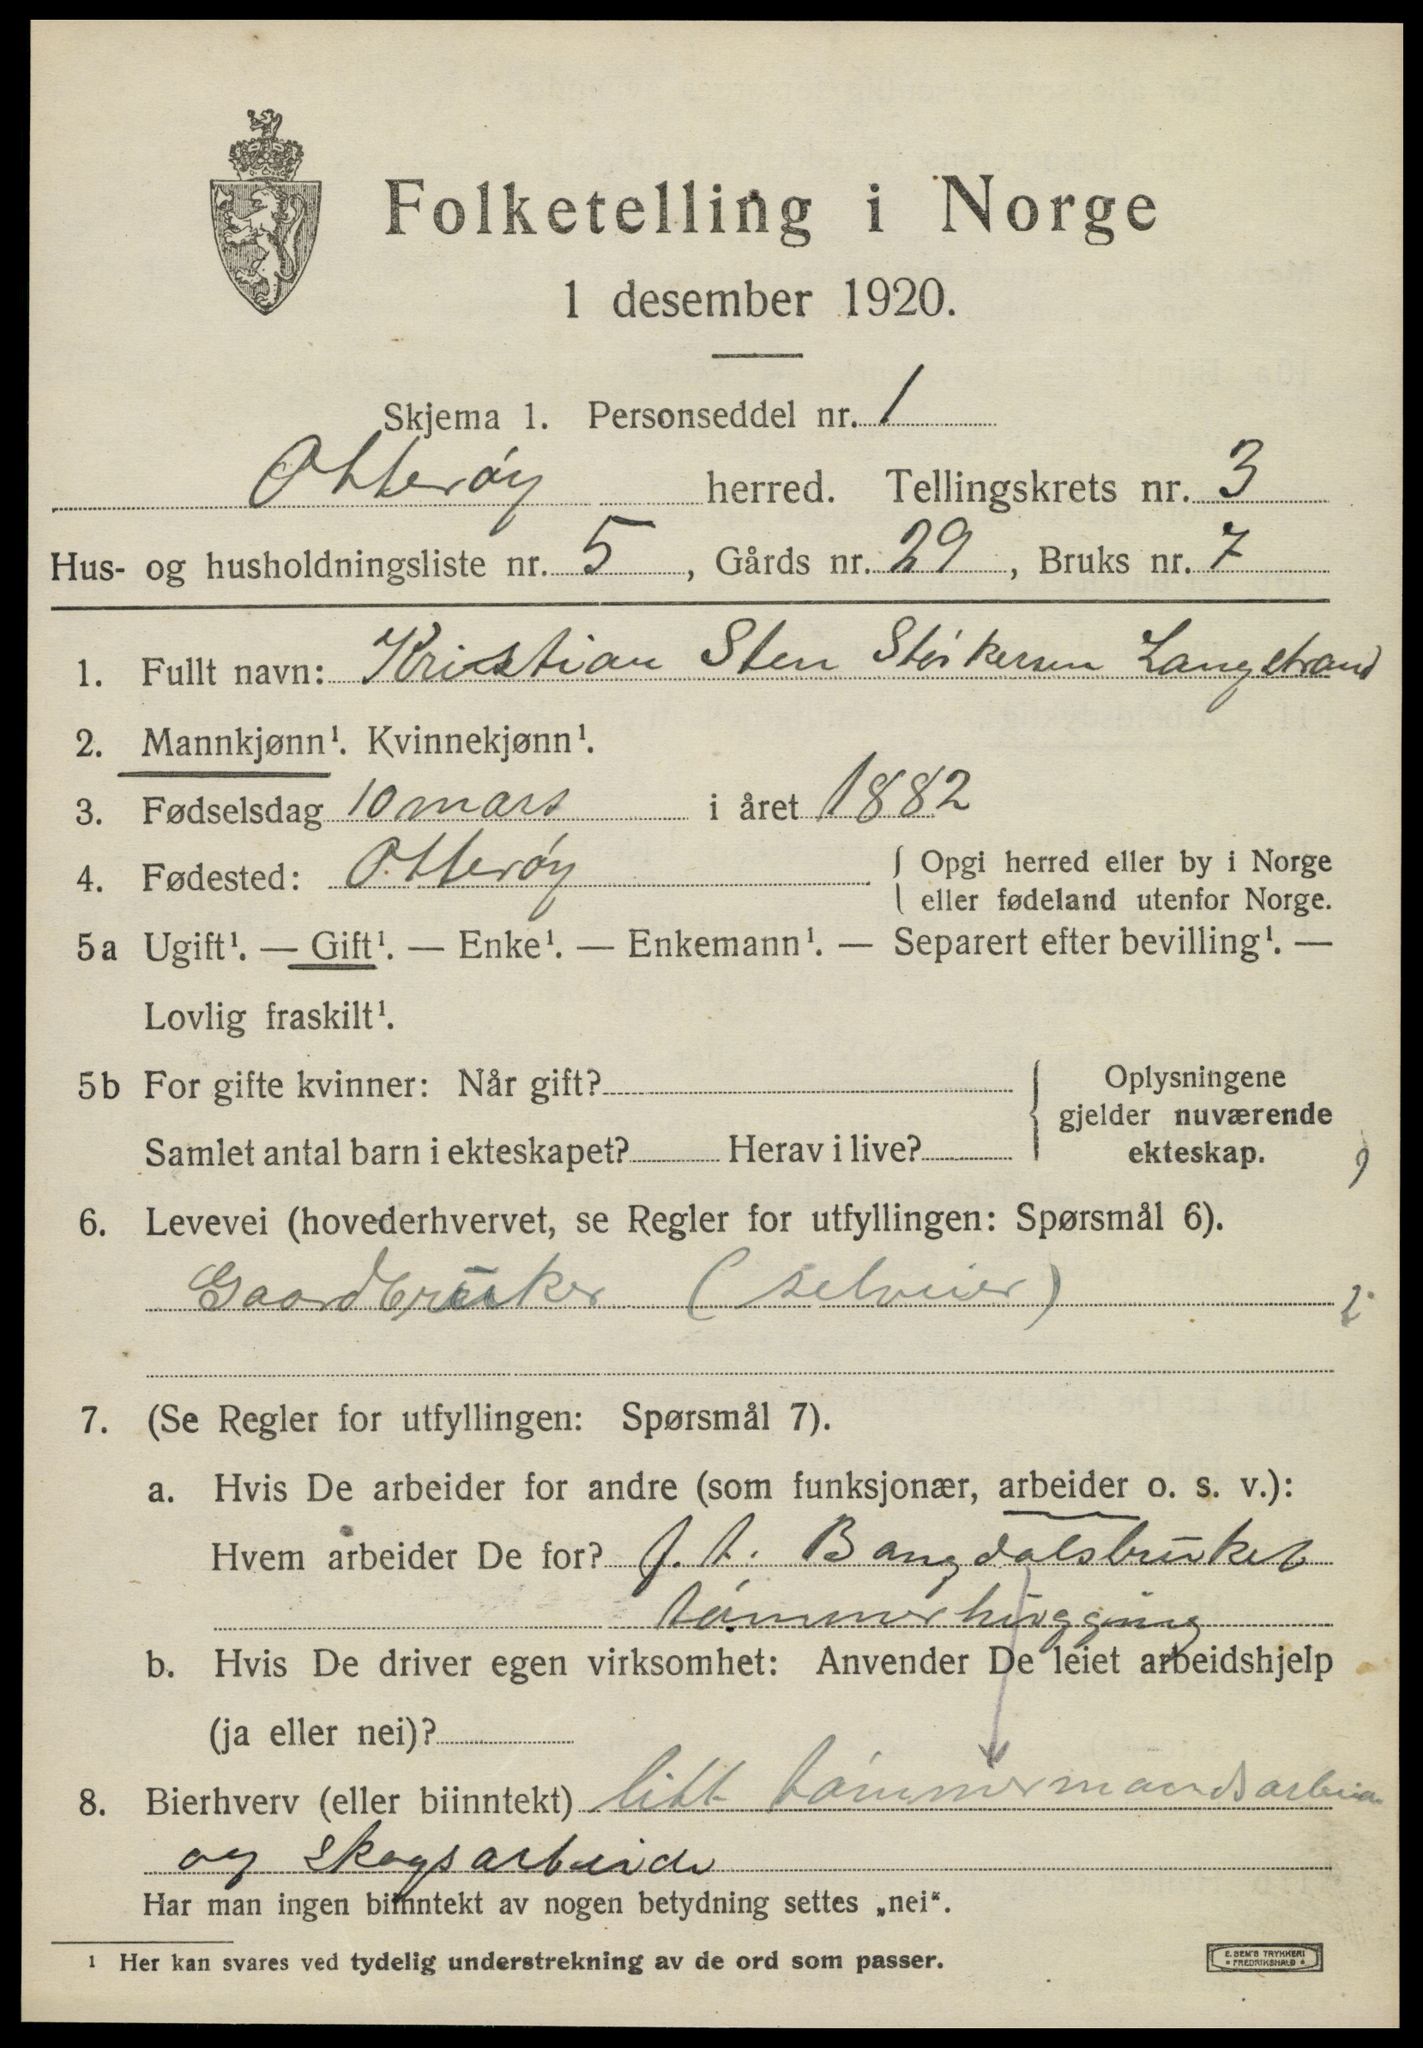 Folketelling i Norge
1 desember 1920.
Skjema 1. Personseddel nr. 1
Otterøy herred. Tellingskrets nr. 3
Hus- og husholdningsliste nr. 5, Gårds nr. 29, Bruks nr. 7
1. Fullt navn: Kristian Sten Störkersen Langstrand
2. Mannkjønn¹. Kvinnekjønn¹.
3. Fødselsdag 10 mars i året 1882
4. Fødested: Otterøy { Opgi herred eller by i Norge
eller fødeland utenfor Norge.
5a Ugift¹. — Gift¹. — Enke¹. — Enkemann¹. — Separert efter bevilling¹. —
Lovlig fraskilt¹.
5b For gifte kvinner: Når gift? { Oplysningene
gjelder nuværende
Samlet antal barn i ekteskapet? Herav i live? ekteskap.
6. Levevei (hovederhvervet, se Regler for utfyllingen: Spørsmål 6).
Gaardbruker (selveier)
7. (Se Regler for utfyllingen: Spørsmål 7).
a. Hvis De arbeider for andre (som funksjonær, arbeider o. s. v.):
Hvem arbeider De for? f. t. Bangdalsbruket
tømmerhugging
b. Hvis De driver egen virksomhet: Anvender De leiet arbeidshjelp
(ja eller nei)?
8. Bierhverv (eller biinntekt) litt tømmermandsarbeide
og skogsarbeide
Har man ingen biinntekt av nogen betydning settes „nei“.
¹ Her kan svares ved tydelig understrekning av de ord som passer.
E. SEM'S TRYKKERI
FREDRIKSHALD